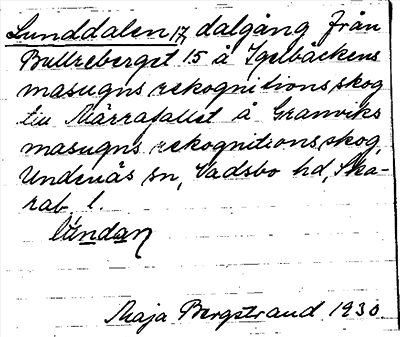 Lunddalen 17, dalgång från
Bullreberget 15 å Igelbäckens
masugns rekognitionsskog
till Märrafallet å Granviks
masugns rekognitionsskog,
Undenäs sn, Vadsbo hd, Ska-
rab. l.
Undan
Maja Bergstrand 1930.